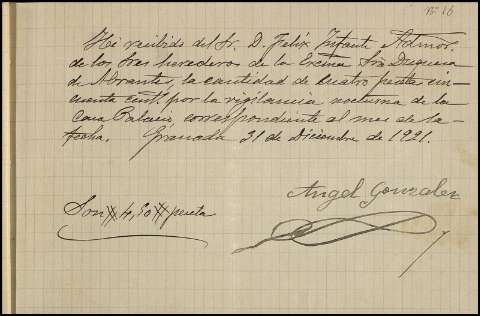 Nº 16
He recibido del Sr. D. Felix Infante Admor.
de los Sres herederos de la Excma Sra Duquesa
de Abrantes, la cantidad de cuatro pesetas cin-
cuenta cents. por la vigilancia nocturna de la
Casa Palacio, correspondiente al mes de la
fecha. Granada 31 de Diciembre de 1921.
Angel Gonzalez
Son # 4,50 # pesetas